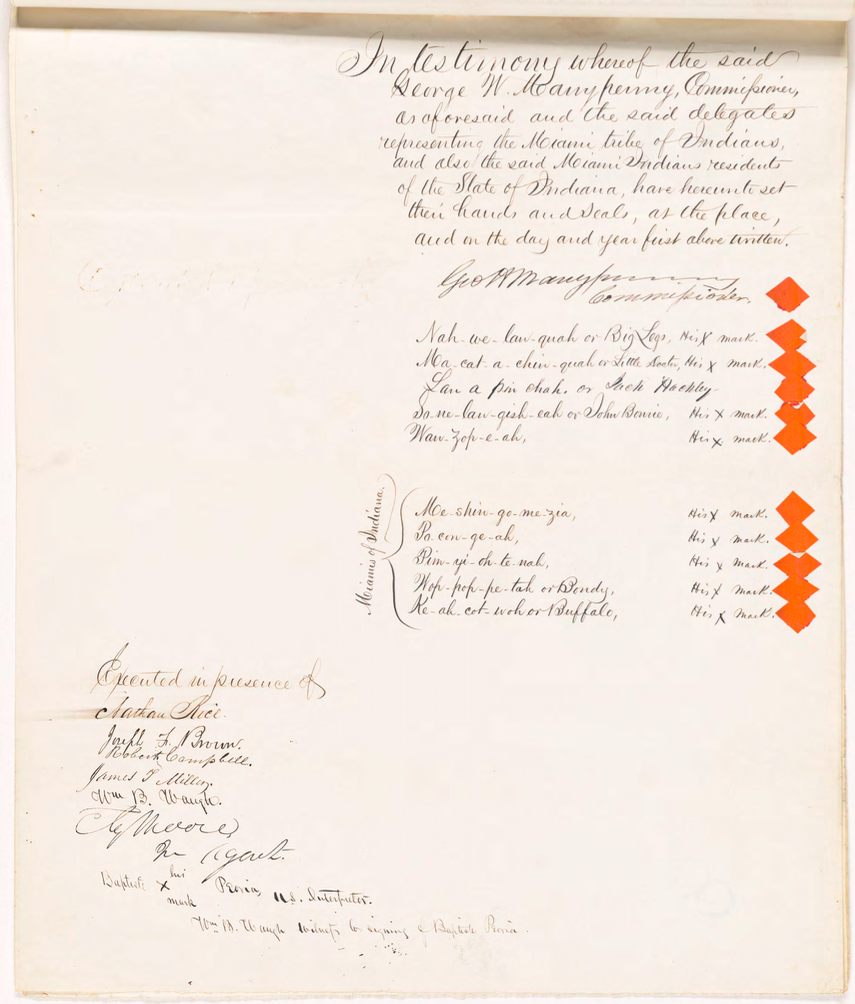 In testimony whereof the said
George W. Manypenny, Commissioner,
as aforesaid and the said delegates
representing the Miami tribe of Indians,
and also the said Miami Indians residents
of the State of Indiana, have hereunto set
their hands and seals, at the place,
and on the day and year first above written.
Geo W Manypenny
Commissioner.
Nah-we-lan-quah or Big Legs, His X mark.
Ma-cat-a-chin-quah or Little Doctor, His X mark.
Lan a pin chah. or Jack Hackley
So-ne-lan-gish-eah or John Bowrie, His X mark.
Wan-zop-e-ah, His X mark.
Miamis of Indiana.
Me-shin-go-me-zia, His X mark.
Po-con-ge-ah, His X mark.
Pim-yi-oh-te-mah, His X mark.
Wop-pop-pe-tah or Bondy, His X mark.
Ke-ah-cot-woh or Buffalo, His X mark.
Executed in presence of
Nathan Rice.
Joseph F. Brown.
Robert Campbell.
James T Miller.
Wm B. Waugh.
Ely Moore,
Agent.
Baptiste his X mark Peoria, U.S. Interpreter.
Wm B. Waugh witness to signing of Baptiste Peoria.